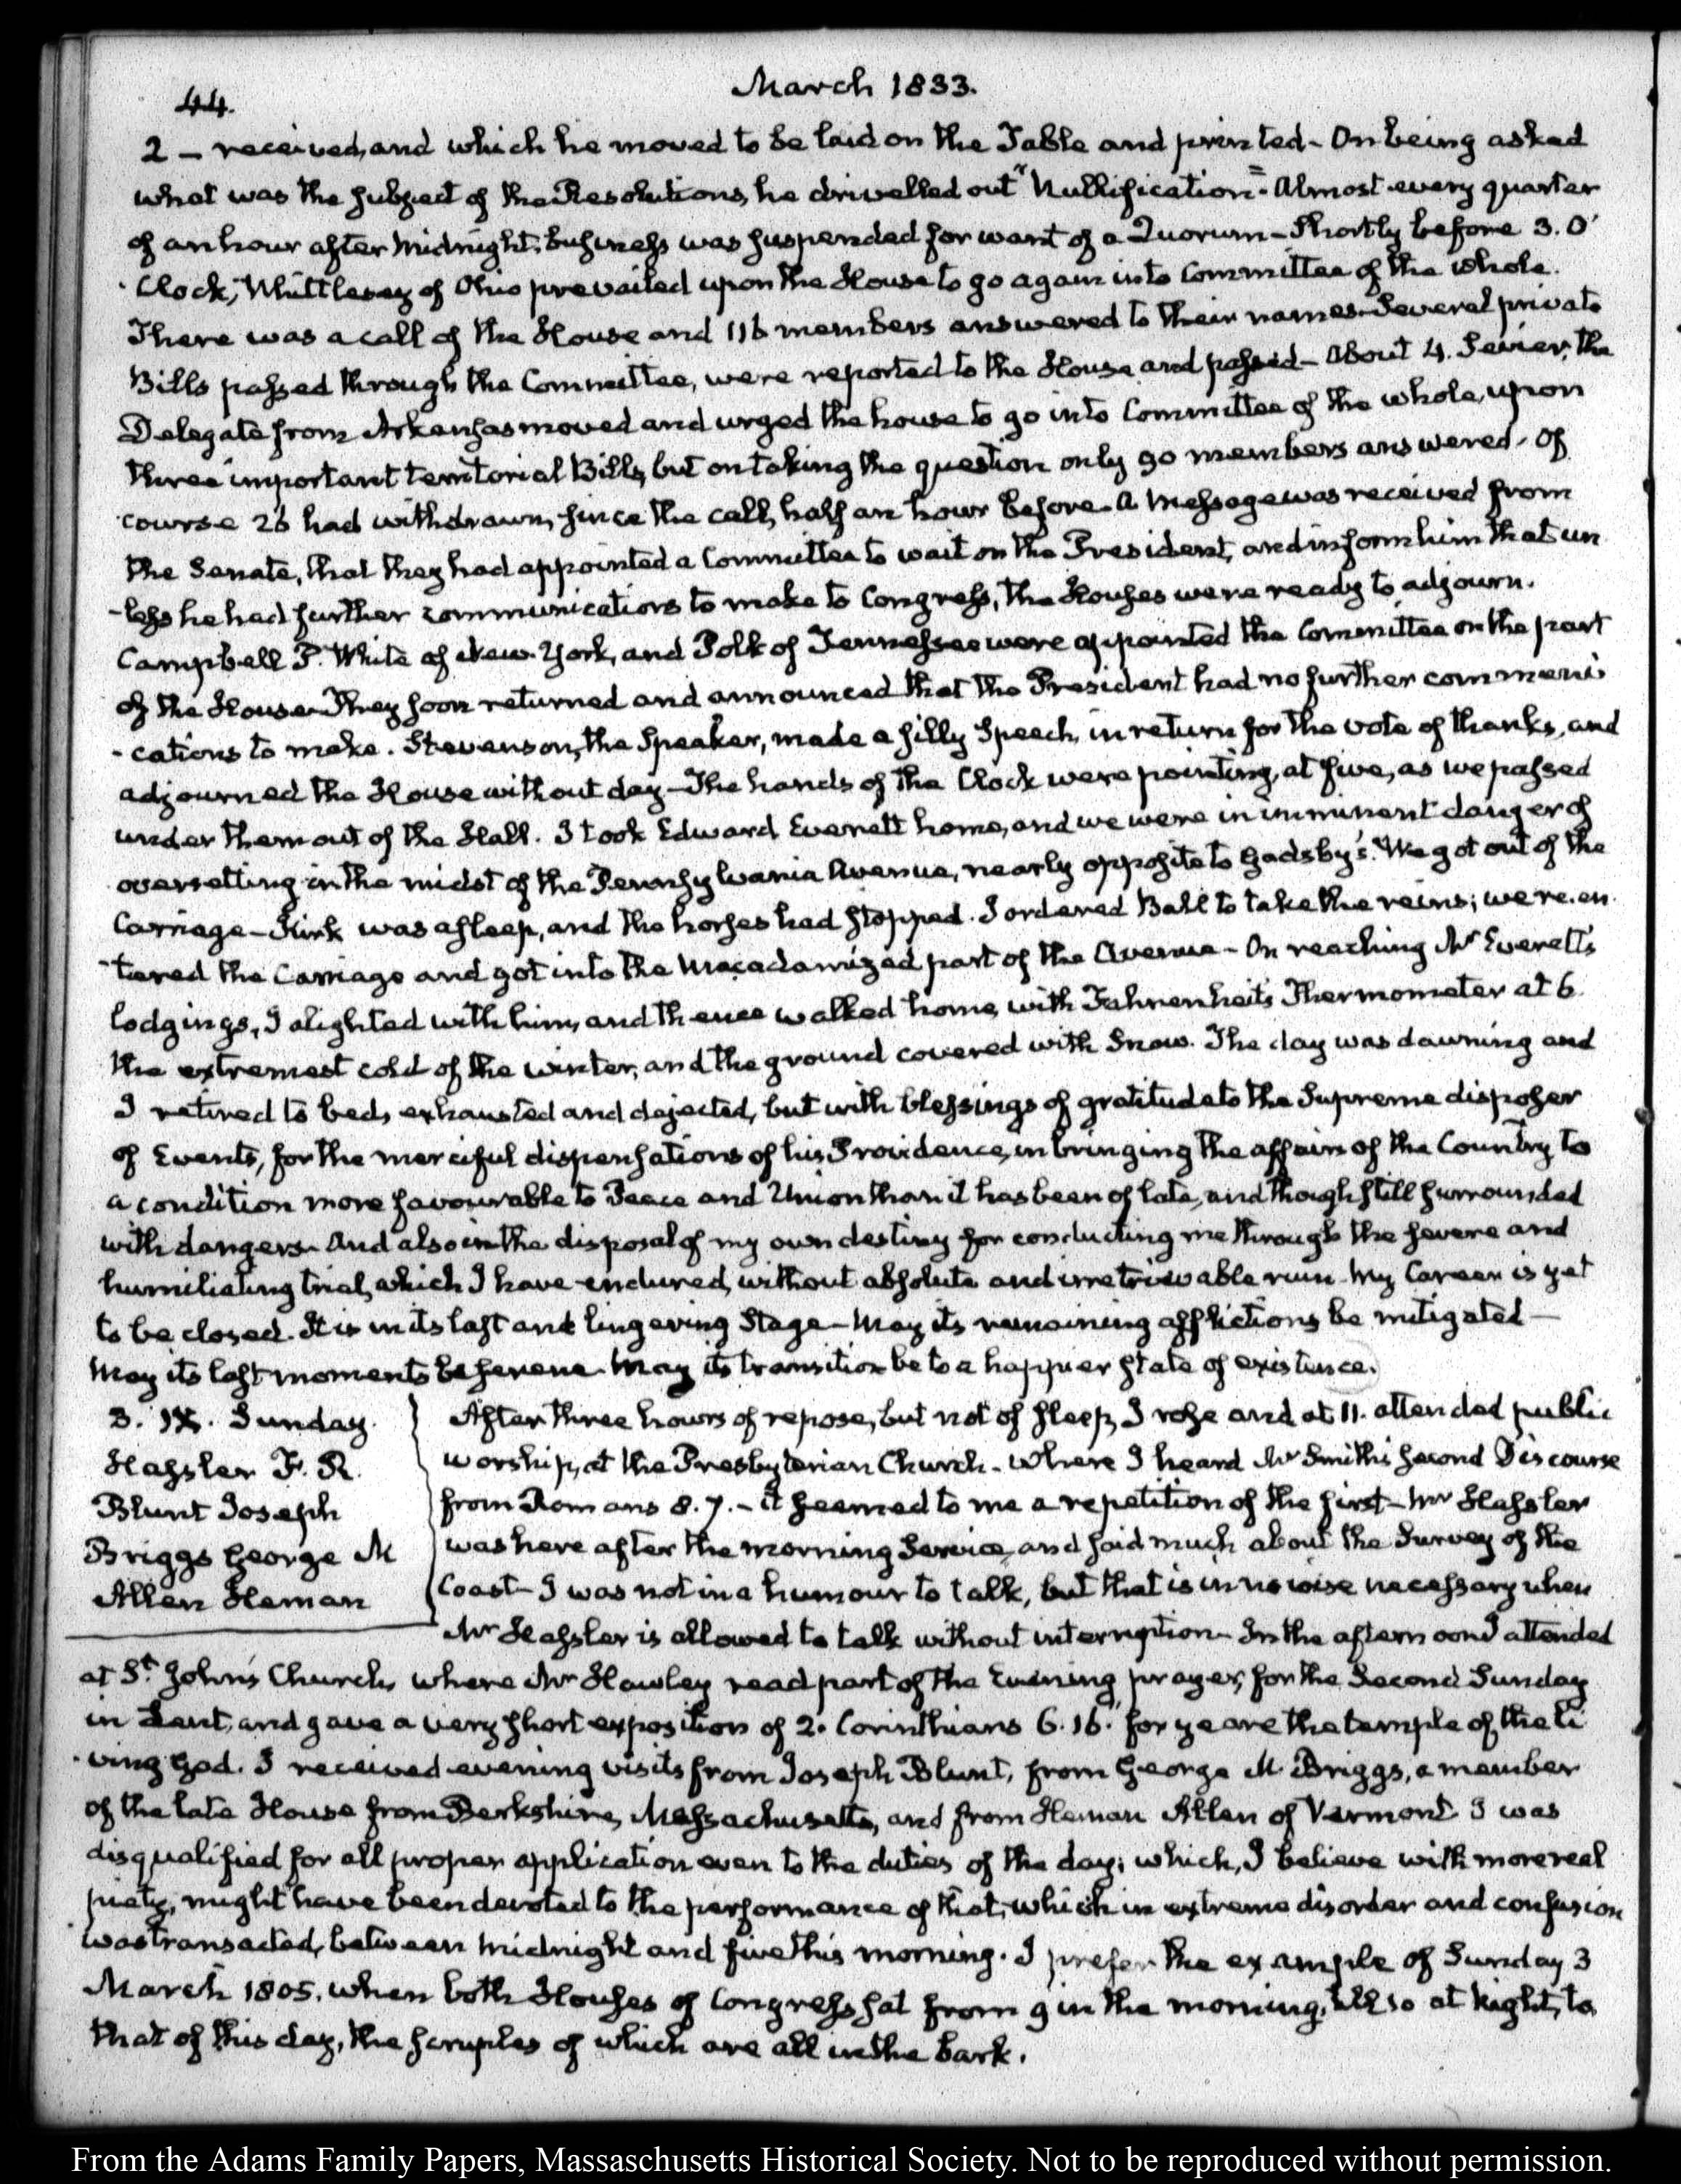 44.
March 1833.
2 – received, and which he moved to be laid on the Table and printed – On being asked
what was the subject of the Resolutions, he drivelled out "Nullification" – Almost every quarter
of an hour after midnight, business was suspended for want of a Quorum – Shortly before 3. O'
Clock, Whittlesey of Ohio prevailed upon the House to go again into Committee of the whole.
There was a call of the House and 116 members answered to their names – Several private
Bills passed through the Committee, were reported to the House and passed – About 4. Sevier, the
Delegate from Arkansas moved and urged the house to go into Committee of the whole, upon
three important territorial Bills, but on taking the question only 90 members answered – Of
course 26 had withdrawn, since the call, half an hour before – A Message was received from
the Senate, that they had appointed a Committee to wait on the President, and inform him that un
-less he had further communications to make to Congress, the Houses were ready to adjourn.
Campbell P. White of New-York, and Polk of Tennessee were appointed the Committee on the part
of the House – They soon returned and announced that the President had no further communi
-cations to make. Stevenson, the Speaker, made a silly Speech, in return for the vote of thanks, and
adjourned the House without day – The hands of the Clock were pointing, at five, as we passed
under them out of the Hall. I took Edward Everett home, and we were in imminent danger of
oversetting in the midst of the Pennsylvania Avenue, nearly opposite to Gadsby's. We got out of the
Carriage – Kirk was asleep, and the horses had stopped. I ordered Ball to take the reins; we re-en
-tered the Carriage and got into the Macadamized part of the Avenue – On reaching Mr Everett's
lodgings, I alighted with him, and thence walked home, with Fahrenheit's Thermometer at 6.
the extremest cold of the winter, and the ground covered with Snow. The day was dawning and
I retired to bed, exhausted and dejected, but with blessings of gratitude to the Supreme disposer
of Events, for the merciful dispensations of his Providence, in bringing the affairs of the Country to
a condition more favourable to Peace and Union than it has been of late, and though still surrounded
with dangers – And also in the disposal of my own destiny for conducting me through the severe and
humiliating trial, which I have endured, without absolute and irretrievable ruin – My Career is yet
to be closed. It is in its last and lingering Stage – May its remaining afflictions be mitigated –
May its last moments be serene – May its transition be to a happier state of existence.
3. IX. Sunday.
Hassler F. R.
Blunt Joseph
Briggs George M
Allen Heman
After three hours of repose, but not of sleep, I rose and at 11. attended public
worship, at the Presbyterian Church – Where I heard Mr Smith's second Discourse
from Romans 8. 7. – it seemed to me a repetition of the first – Mr Hassler
was here after the morning Service, and said much about the Survey of the
Coast – I was not in a humour to talk, but that is in no wise necessary when
Mr Hassler is allowed to talk without interruption – In the afternoon I attended
at St. John's Church, where Mr Hawley read part of the Evening prayer, for the Second Sunday
in Lent, and gave a very short exposition of 2. Corinthians 6. 16. for ye are the temple of the li
-ving God. I received evening visits from Joseph Blunt, from George M. Briggs, a member
of the late House from Berkshire, Massachusetts, and from Heman Allen of Vermont. I was
disqualified for all proper application even to the duties of the day; which, I believe with more real
piety, might have been devoted to the performance of that, which in extreme disorder and confusion
was transacted, between midnight and five this morning. I prefer the example of Sunday 3
March 1805. when both Houses of Congress sat from 9 in the morning, till 10 at Night, to
that of this day, the scruples of which are all in the bark.
From the Adams Family Papers, Massachusetts Historical Society. Not to be reproduced without permission.